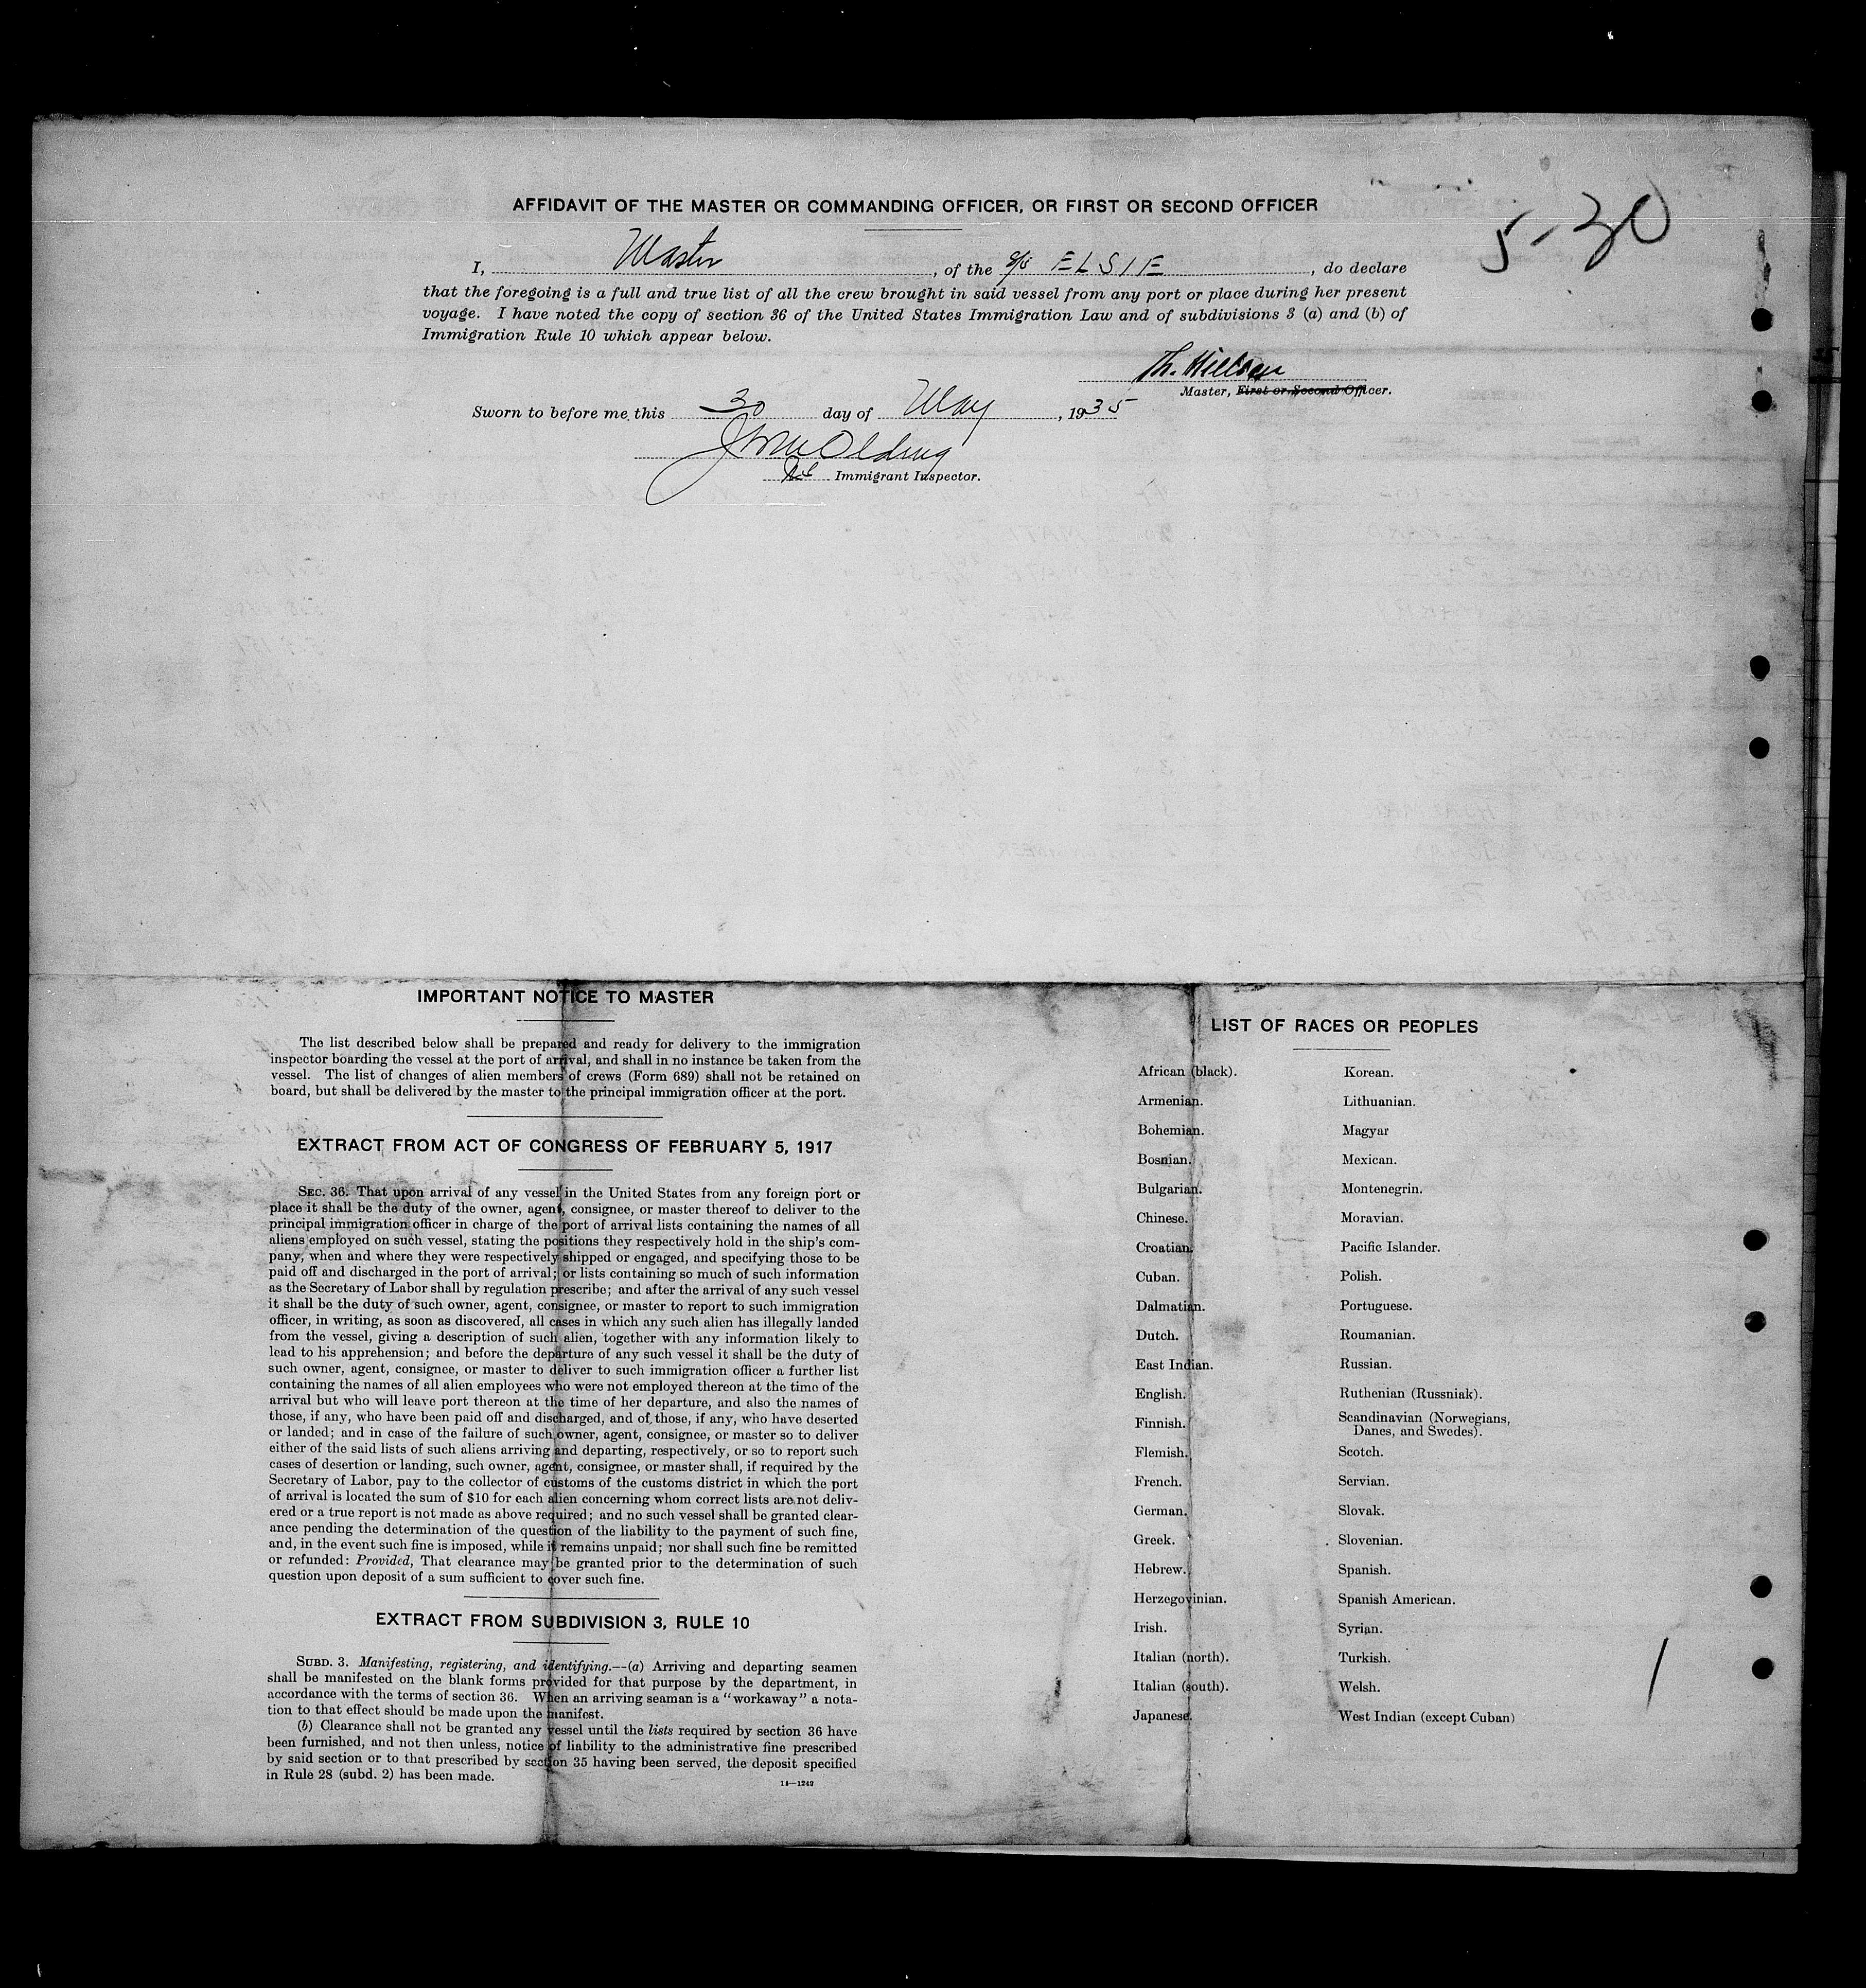 5-30
AFFIDAVIT OF THE MASTER OR COMMANDING OFFICER, OR FIRST OR SECOND OFFICER
I, Master, of the S/S ELSIE, do declare
that the foregoing is a full and true list of all the crew brought in said vessel from any port or place during her present
voyage. I have noted the copy of section 36 of the United States Immigration Law and of subdivisions 3 (a) and (b) of
Immigration Rule 10 which appear below.
Th. Nielsen
Master, First or Second Officer.
Sworn to before me this 30 day of May, 1935
Immigrant Inspector.
IMPORTANT NOTICE TO MASTER
The list described below shall be prepared and ready for delivery to the immigration
inspector boarding the vessel at the port of arrival, and shall in no instance be taken from the
vessel. The list of changes of alien members of crews (Form 689) shall not be retained on
board, but shall be delivered by the master to the principal immigration officer at the port.
EXTRACT FROM ACT OF CONGRESS OF FEBRUARY 5, 1917
SEC. 36. That upon arrival of any vessel in the United States from any foreign port or
place it shall be the duty of the owner, agent, consignee, or master thereof to deliver to the
principal immigration officer in charge of the port of arrival lists containing the names of all
aliens employed on such vessel, stating the positions they respectively hold in the ship's com-
pany, when and where they were respectively shipped or engaged, and specifying those to be
paid off and discharged in the port of arrival; or lists containing so much of such information
as the Secretary of Labor shall by regulation prescribe; and after the arrival of any such vessel
it shall be the duty of such owner, agent, consignee, or master to report to such immigration
officer, in writing, as soon as discovered, all cases in which any such alien has illegally landed
from the vessel, giving a description of such alien, together with any information likely to
lead to his apprehension; and before the departure of any such vessel it shall be the duty of
such owner, agent, consignee, or master to deliver to such immigration officer a further list
containing the names of all alien employees who were not employed thereon at the time of the
arrival but who will leave port thereon at the time of her departure, and also the names of
those, if any, who have been paid off and discharged, and of those, if any, who have deserted
or landed; and in case of the failure of such owner, agent, consignee, or master so to deliver
either of the said lists of such aliens arriving and departing, respectively, or so to report such
cases of desertion or landing, such owner, agent, consignee, or master shall, if required by the
Secretary of Labor, pay to the collector of customs of the customs district in which the port
of arrival is located the sum of $10 for each alien concerning whom correct lists are not deliv-
ered or a true report is not made as above required; and no such vessel shall be granted clear-
ance pending the determination of the question of the liability to the payment of such fine,
and, in the event such fine is imposed, while it remains unpaid; nor shall such fine be remitted
or refunded: Provided, That clearance may be granted prior to the determination of such
question upon deposit of a sum sufficient to cover such fine.
EXTRACT FROM SUBDIVISION 3, RULE 10
SUBD. 3. Manifesting, registering, and identifying.—(a) Arriving and departing seamen
shall be manifested on the blank forms provided for that purpose by the department, in
accordance with the terms of section 36. When an arriving seaman is a "workaway" a nota-
tion to that effect should be made upon the manifest.
(b) Clearance shall not be granted any vessel until the lists required by section 36 have
been furnished, and not then unless, notice of liability to the administrative fine prescribed
by said section or to that prescribed by section 35 having been served, the deposit specified
in Rule 28 (subd. 2) has been made.
14—1242
LIST OF RACES OR PEOPLES
African (black).
Armenian.
Bohemian.
Bosnian.
Bulgarian.
Chinese.
Croatian.
Cuban.
Dalmatian.
Dutch.
East Indian.
English.
Finnish.
Flemish.
French.
German.
Greek.
Hebrew.
Herzegovinian.
Irish.
Italian (north).
Italian (south).
Japanese.
Korean.
Lithuanian.
Magyar
Mexican.
Montenegrin.
Moravian.
Pacific Islander.
Polish.
Portuguese.
Roumanian.
Russian.
Ruthenian (Russniak).
Scandinavian (Norwegians,
Danes, and Swedes).
Scotch.
Servian.
Slovak.
Slovenian.
Spanish.
Spanish American.
Syrian.
Turkish.
Welsh.
West Indian (except Cuban)
1